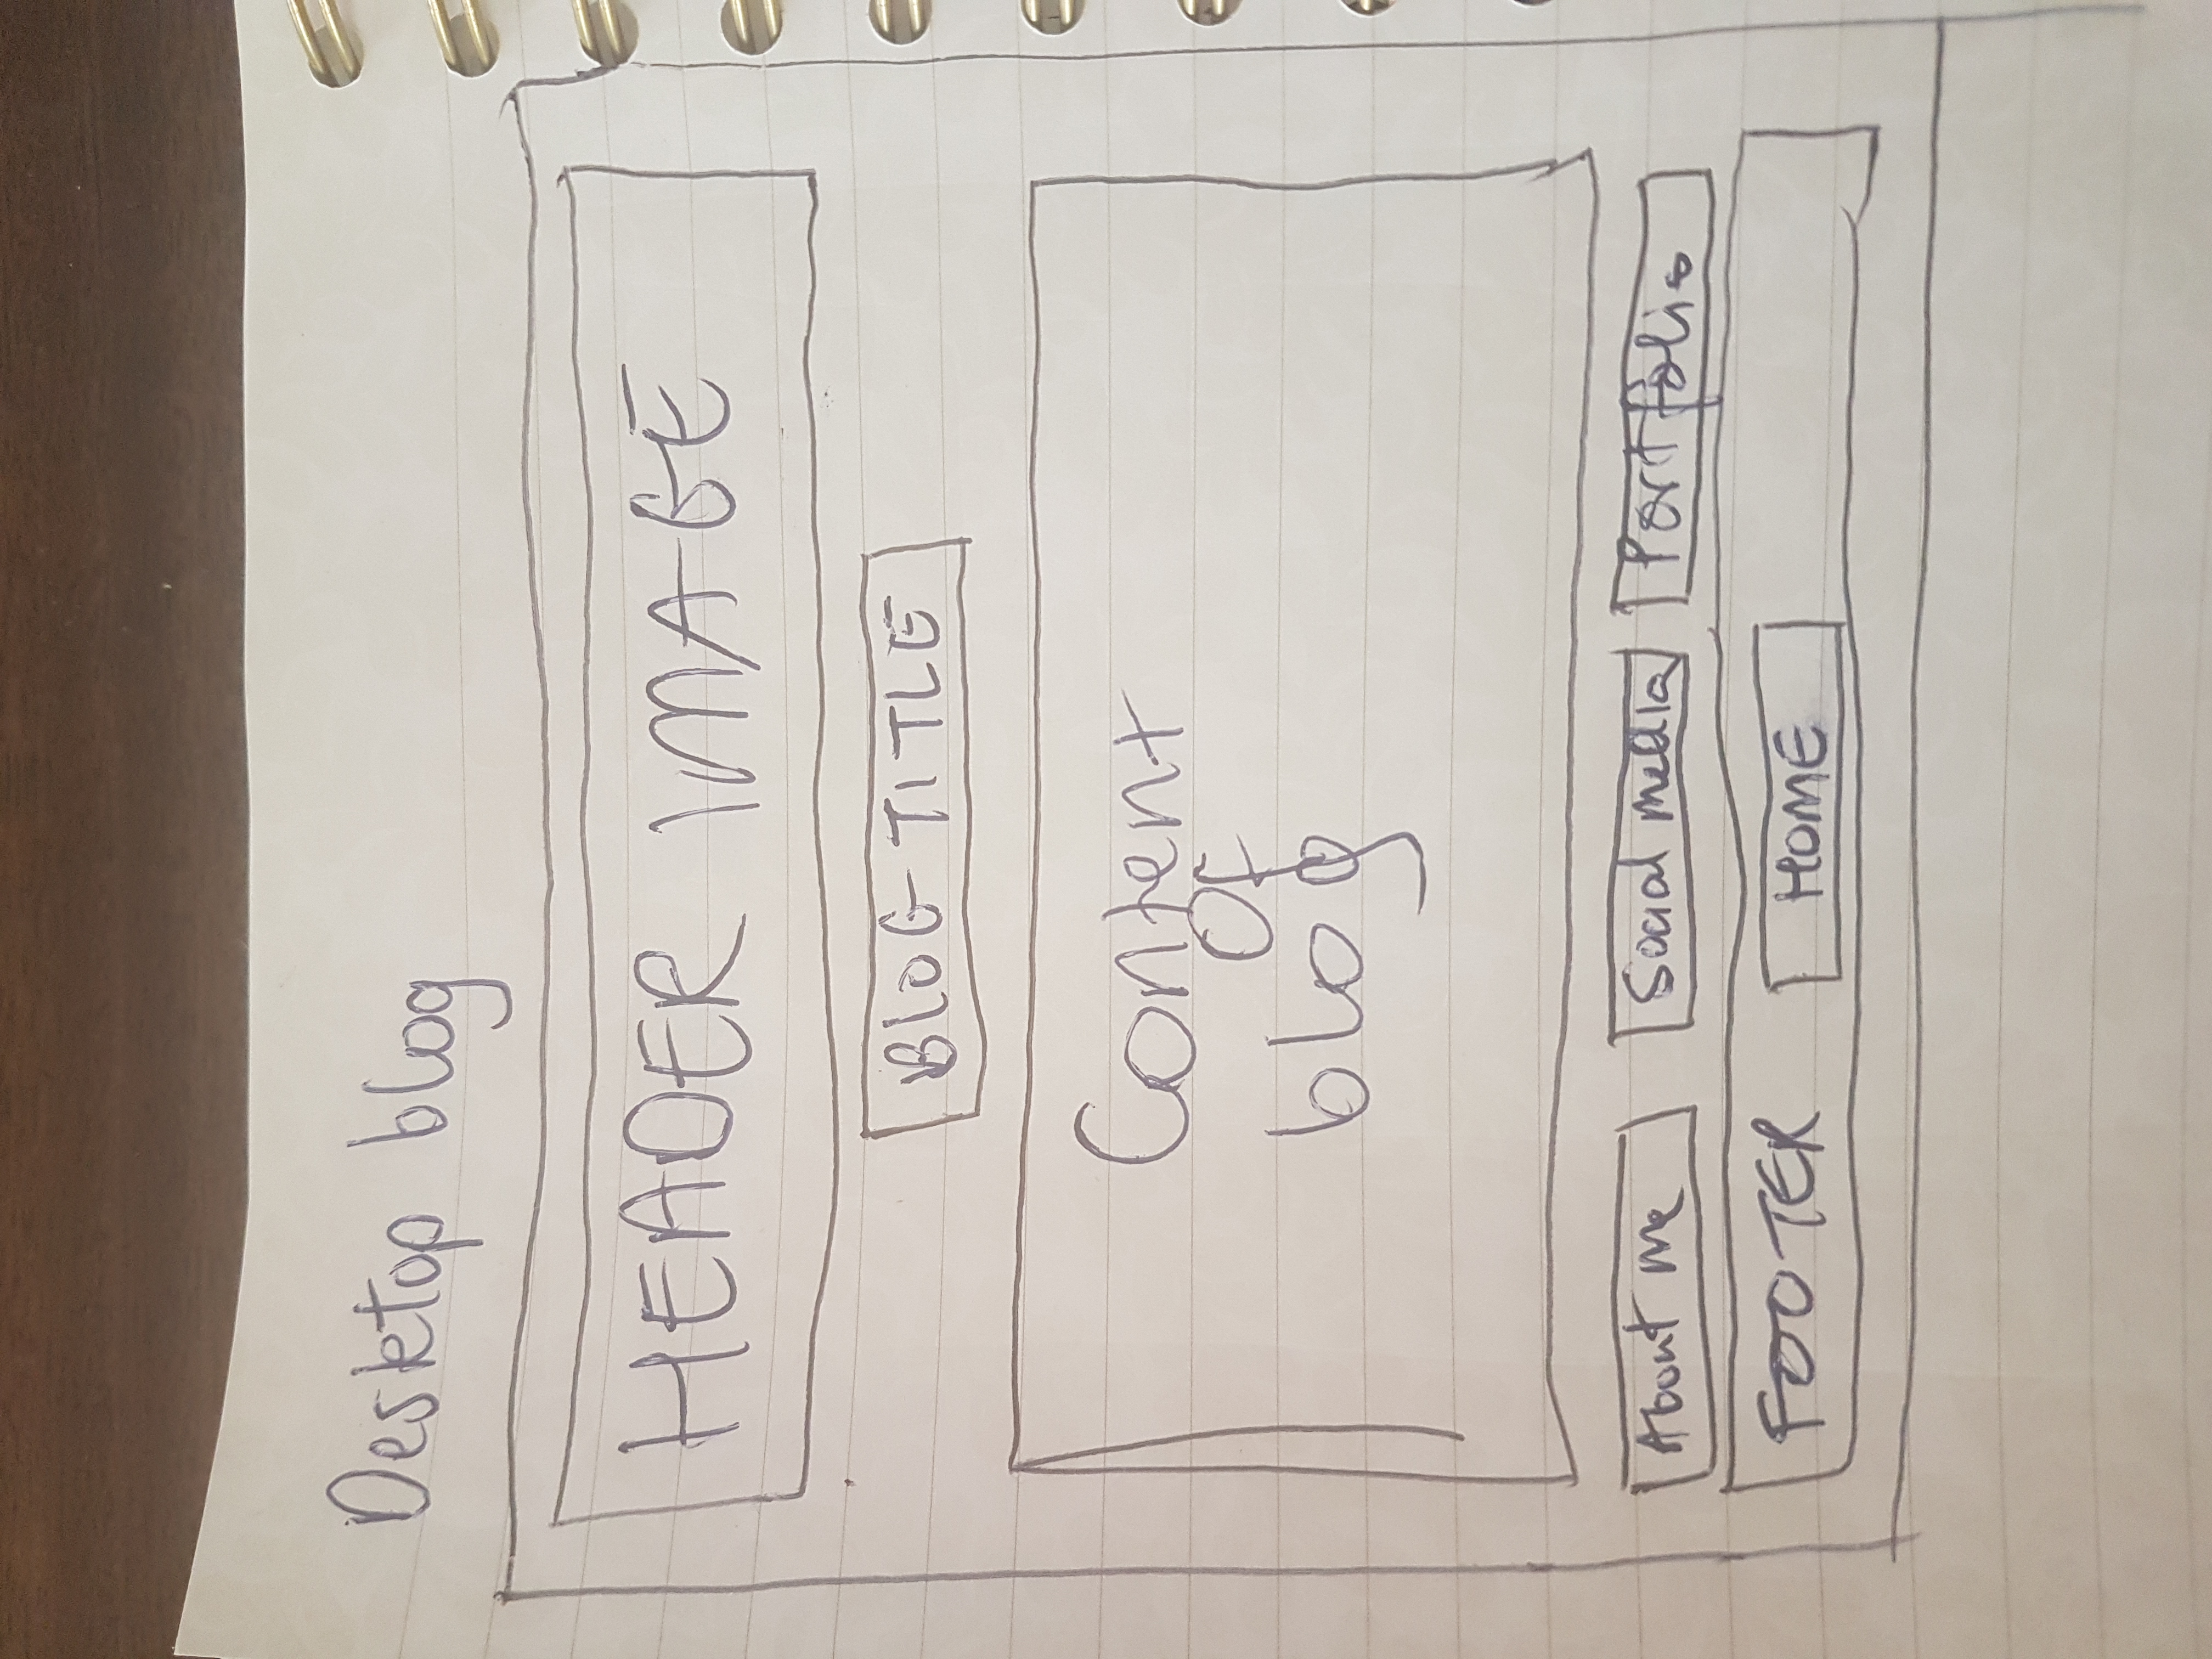 Desktop blog
HEADER IMAGE
BLOG TITLE
Content
Of
blog
About me
Social media
Portfolio
FOOTER
HOME